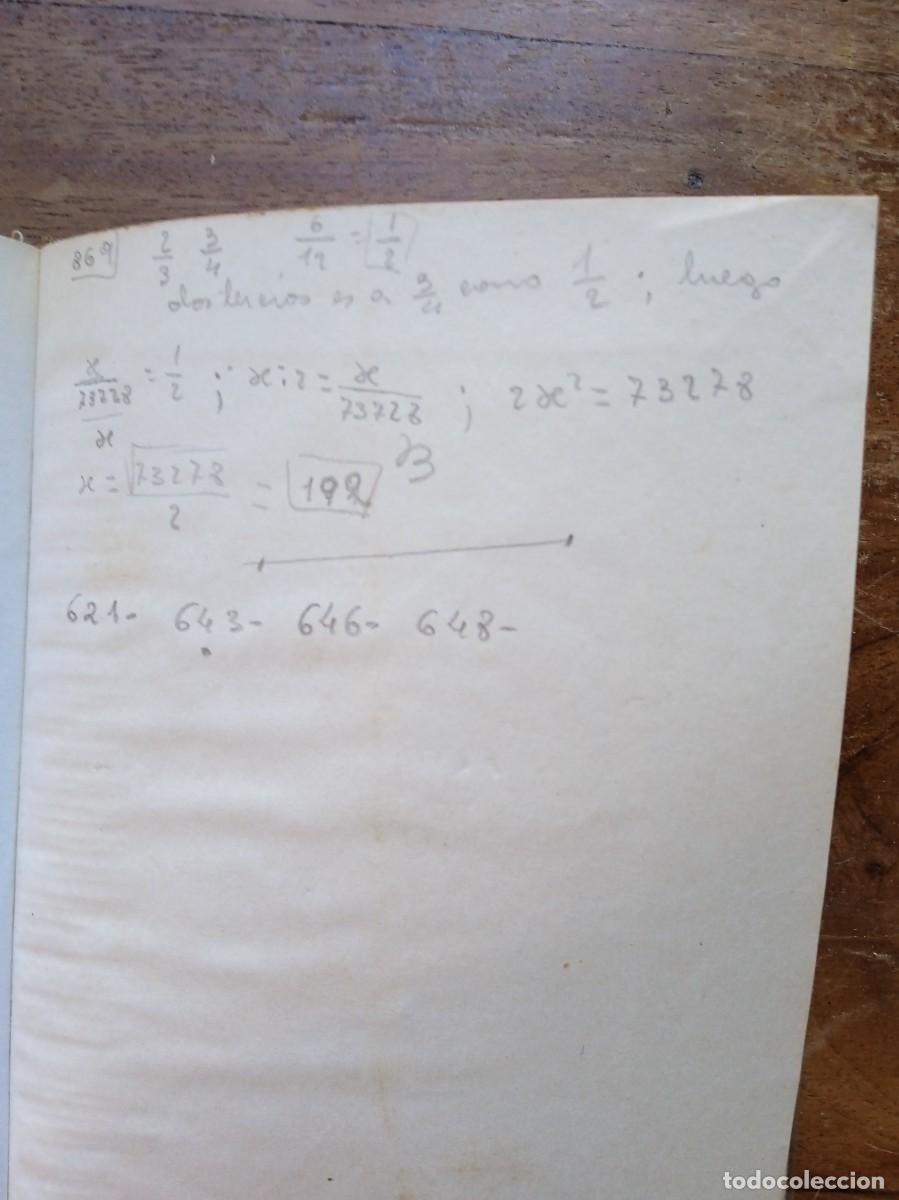 869 2/3 3/4 6/12 = 1/2
dos tercios es a 3/4 como 1/2 ; luego
x/(73728/x) = 1/2 ; x:2 = x/73728 ; 2x² = 73278
x = √73278/2 = 192
621- 643- 646- 648-
todocoleccion